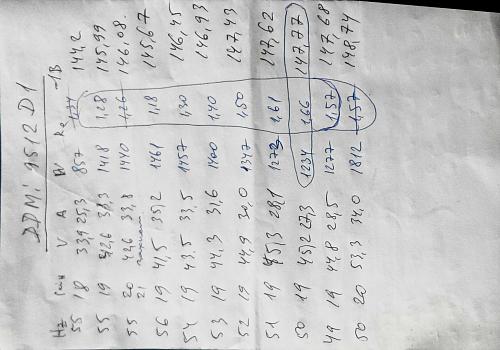 DDMi 9512D1
Hz V A W Re -1B
55 18 33,9 25,3 857 144,2
55 19 42,6 33,3 1418 1,28 145,99
55 20 42,6 33,8 1440 1,26 146,08
21
56 19 41,5 35,2 1461 1,18 145,67
54 19 43,5 33,5 1457 1,30 146,45
53 19 44,3 31,6 1400 1,40 146,93
52 19 44,9 30,0 1347 1,50 147,43
51 19 45,3 28,1 1273 1,61 147,62
50 19 45,2 27,3 1234 1,66 147,77
49 19 44,8 28,5 1277 1,57 147,68
50 20 53,3 34,0 1812 1,57 148,74